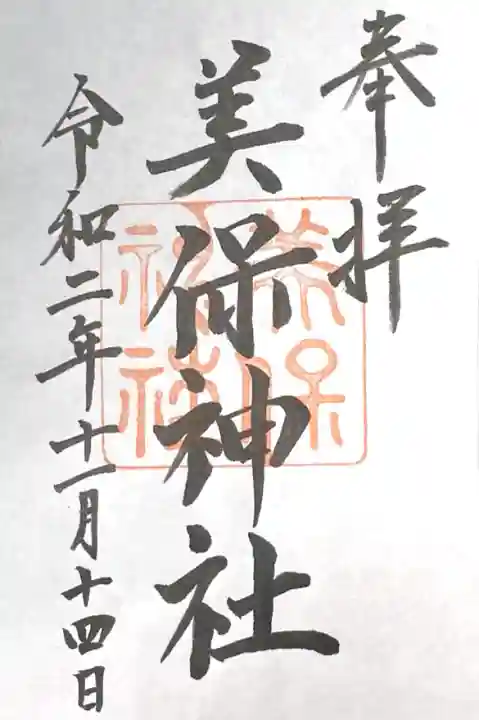 奉拝
美保神社
令和二年十一月十四日
美保神社